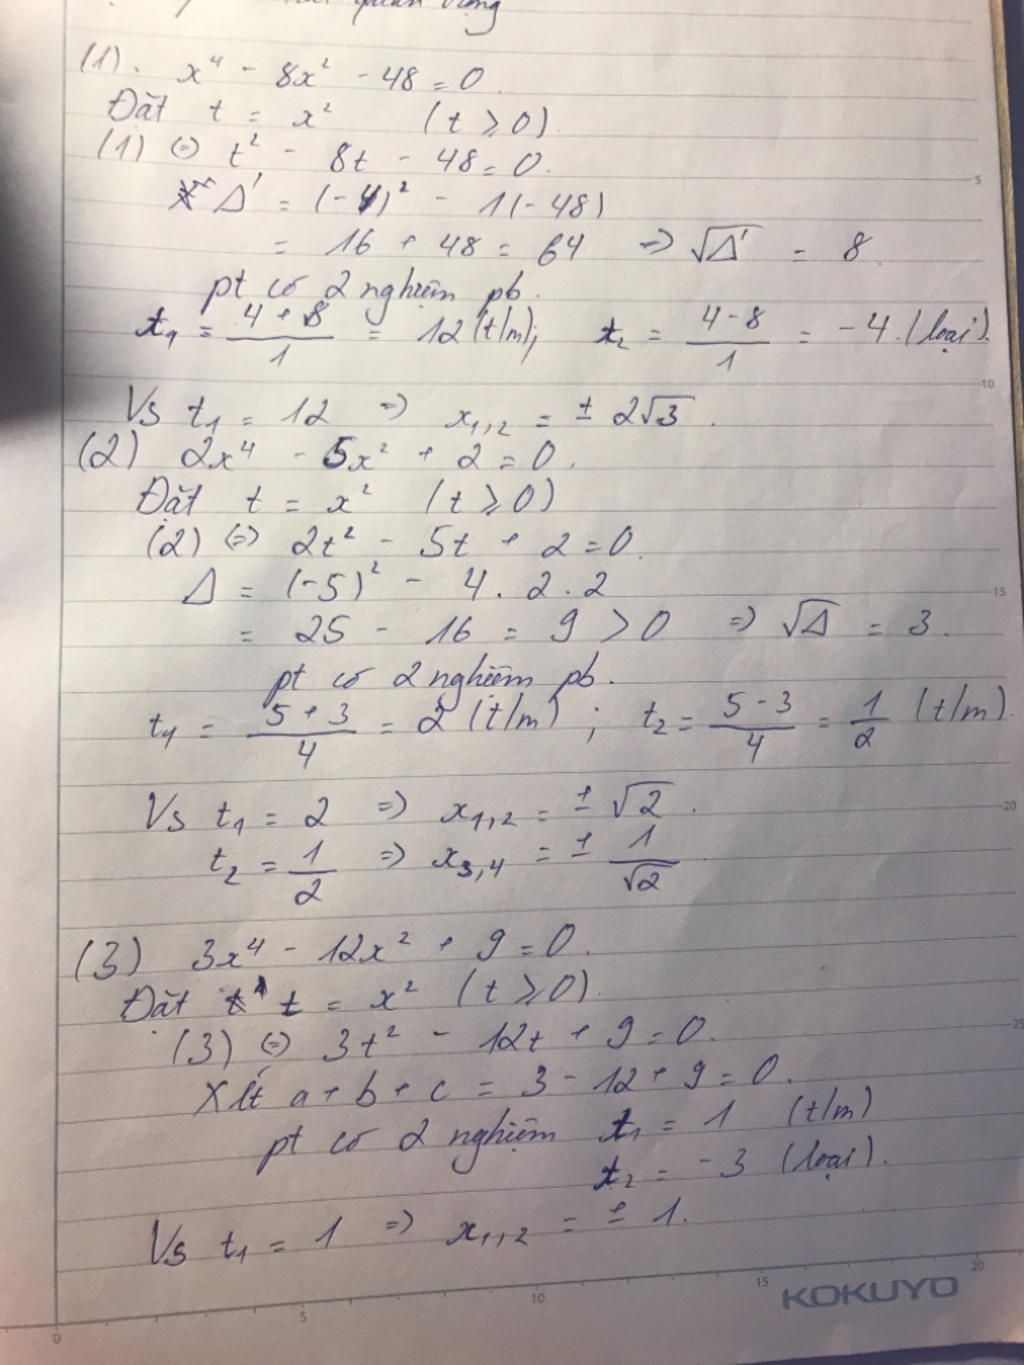 quan trọng
(1). x⁴ - 8x² - 48 = 0.
Đặt t = x² (t ≥ 0)
(1) ⇔ t² - 8t - 48 = 0.
Δ' = (-4)² - 1(-48)
= 16 + 48 = 64 ⇒ √Δ' = 8.
pt có 2 nghiệm pb.
t₁ = (4 + 8)/1 = 12 (t/m); t₂ = (4 - 8)/1 = -4. (loại).
Vs t₁ = 12 ⇒ x₁,₂ = ± 2√3.
(2) 2x⁴ - 5x² + 2 = 0.
Đặt t = x² (t ≥ 0)
(2) ⇔ 2t² - 5t + 2 = 0.
Δ = (-5)² - 4 . 2 . 2
= 25 - 16 = 9 > 0 ⇒ √Δ = 3.
pt có 2 nghiệm pb.
t₁ = (5 + 3)/4 = 2 (t/m) ; t₂ = (5 - 3)/4 = 1/2 (t/m).
Vs t₁ = 2 ⇒ x₁,₂ = ± √2.
t₂ = 1/2 ⇒ x₃,₄ = ± 1/√2
(3) 3x⁴ - 12x² + 9 = 0.
Đặt t = x² (t ≥ 0).
(3) ⇔ 3t² - 12t + 9 = 0.
Xét a + b + c = 3 - 12 + 9 = 0.
pt có 2 nghiệm t₁ = 1 (t/m)
t₂ = -3 (loại).
Vs t₁ = 1 ⇒ x₁,₂ = ± 1.
5
10
15
20
25
0 5 10 15 20
KOKUYO